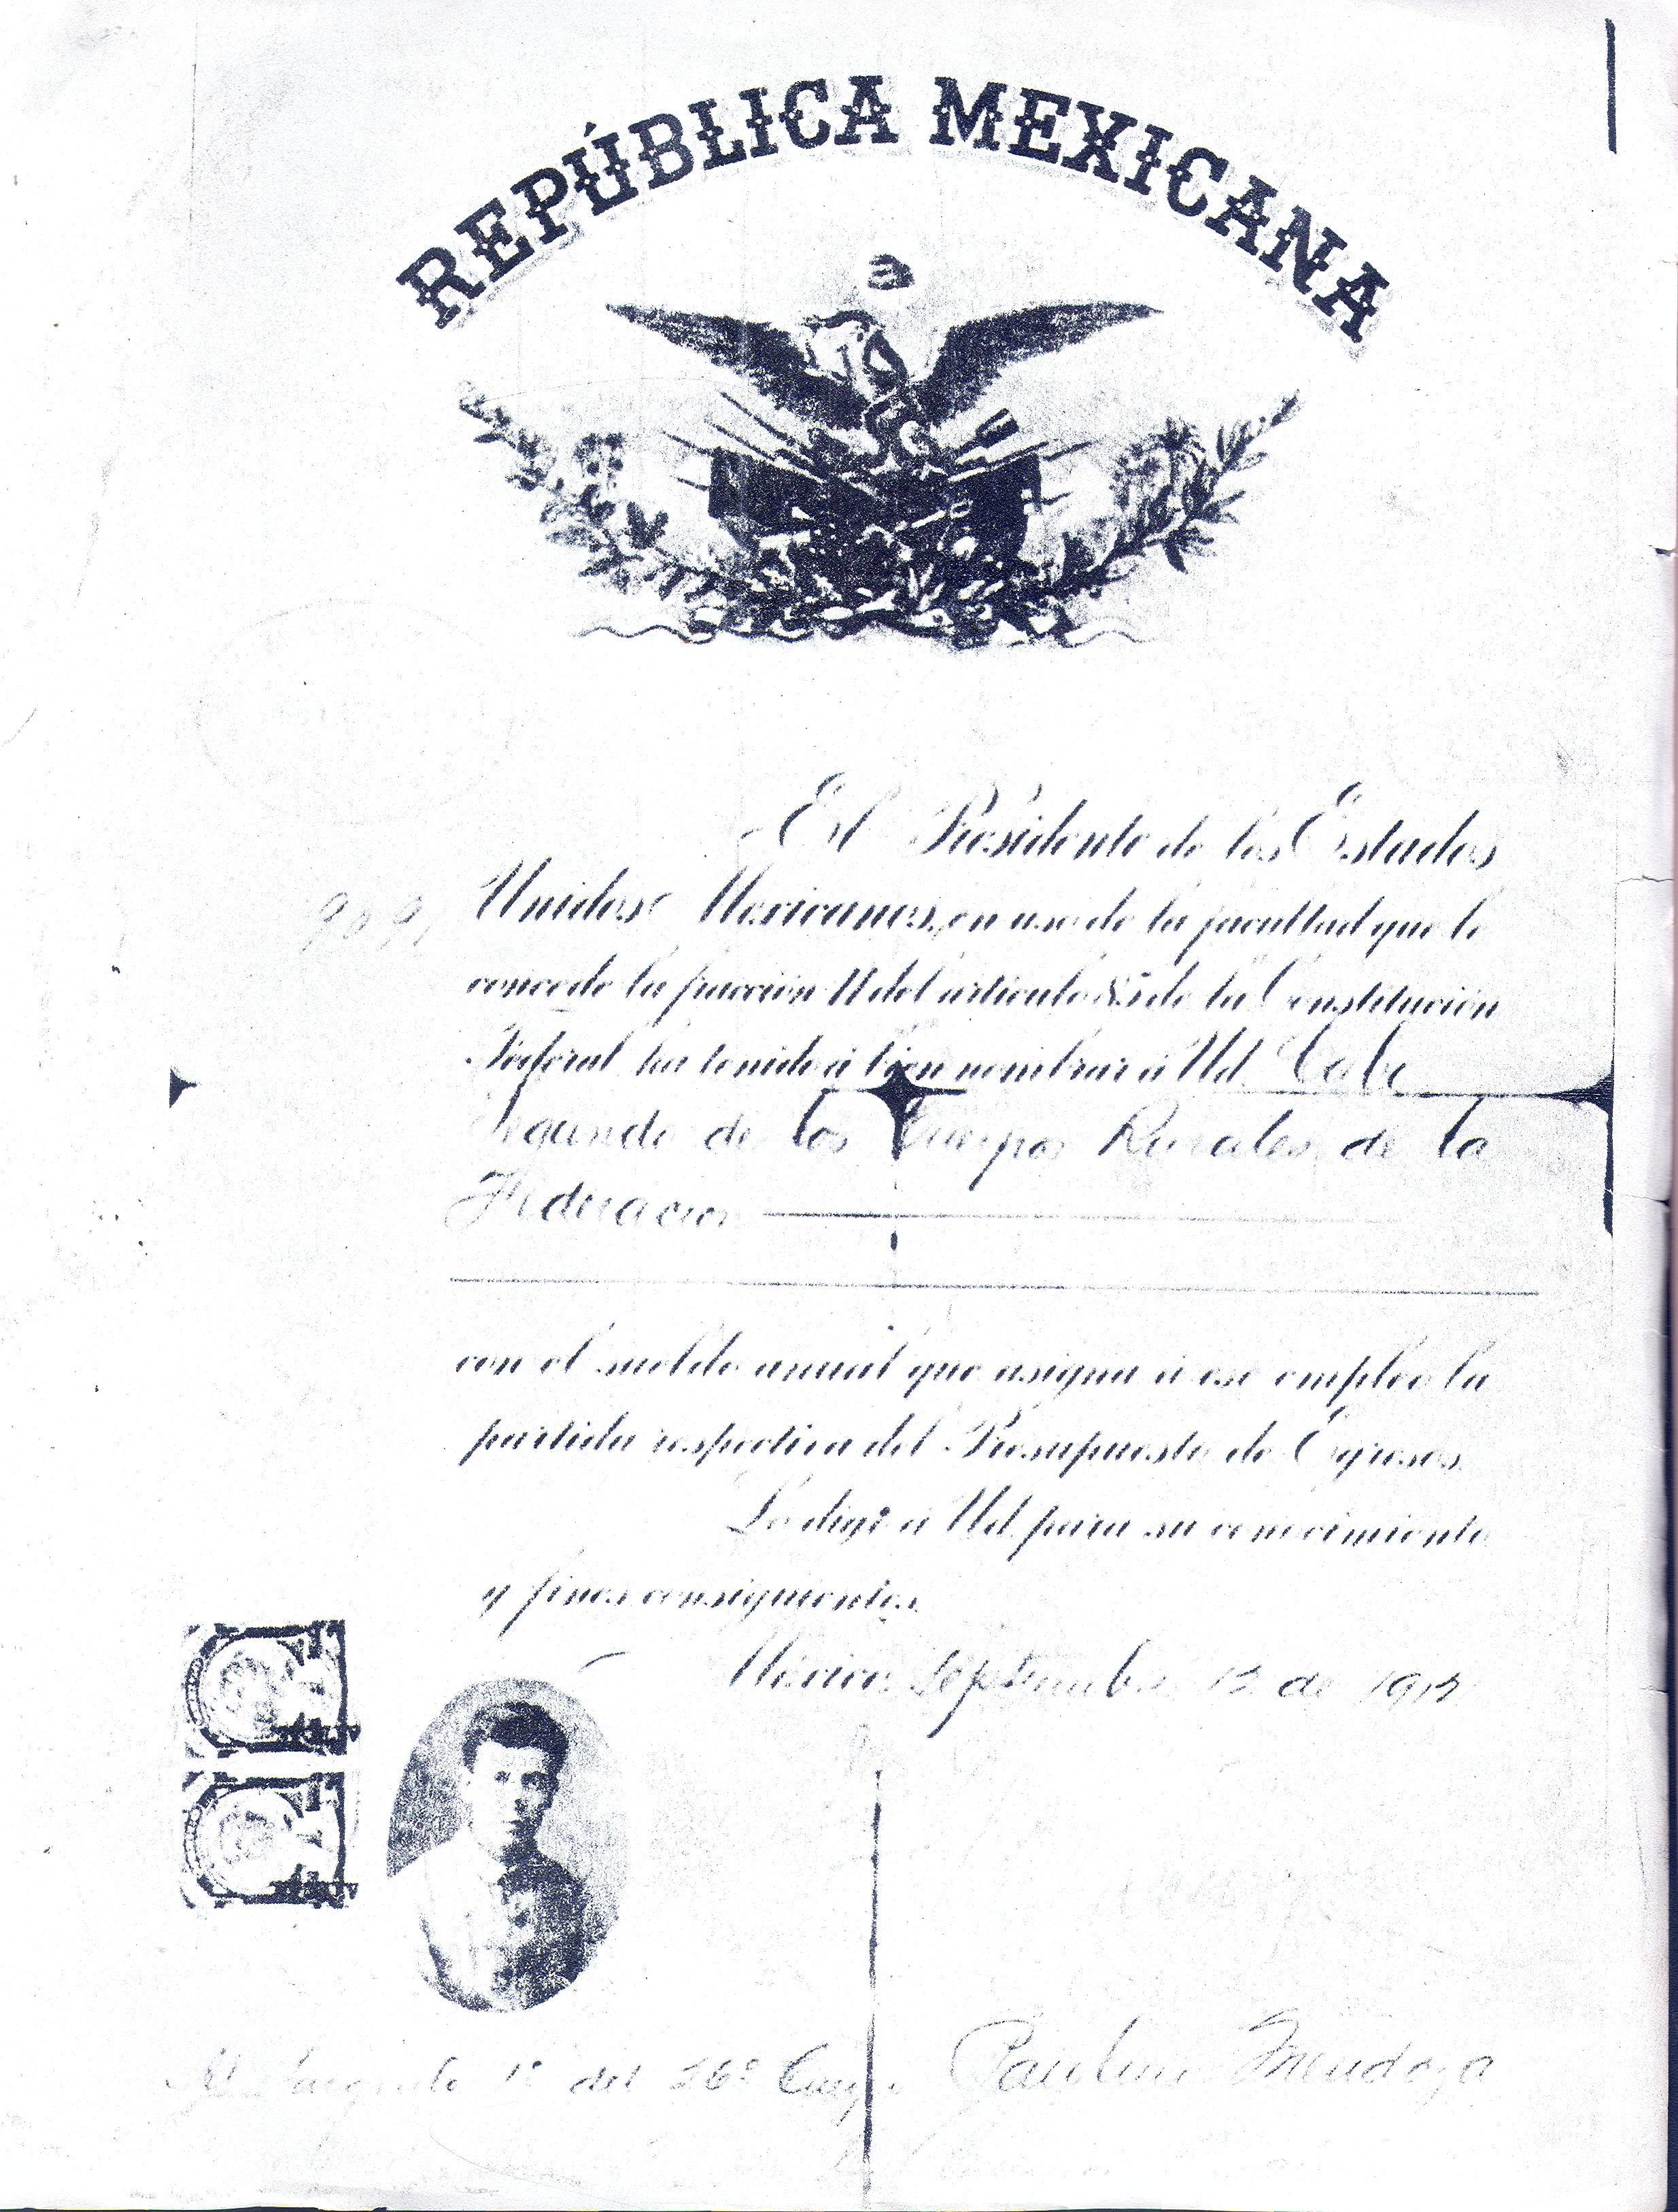 REPÚBLICA MEXICANA
El Presidente de los Estados
Unidos Mexicanos, en uso de la facultad que le
concede la fracción II del artículo 85 de la Constitución
Federal ha tenido á bien nombrar á Ud. Cabo
Segundo de los Cuerpos Rurales de la
Federacion
con el sueldo anual que asigna á ese empleo la
partida respectiva del Presupuesto de Egresos.
Lo digo á Ud. para su conocimiento
y fines consiguientes.
México, Septiembre 12 de 1912
Al Sargento 1º del 26º Cuerpo
Paulino Mendoza